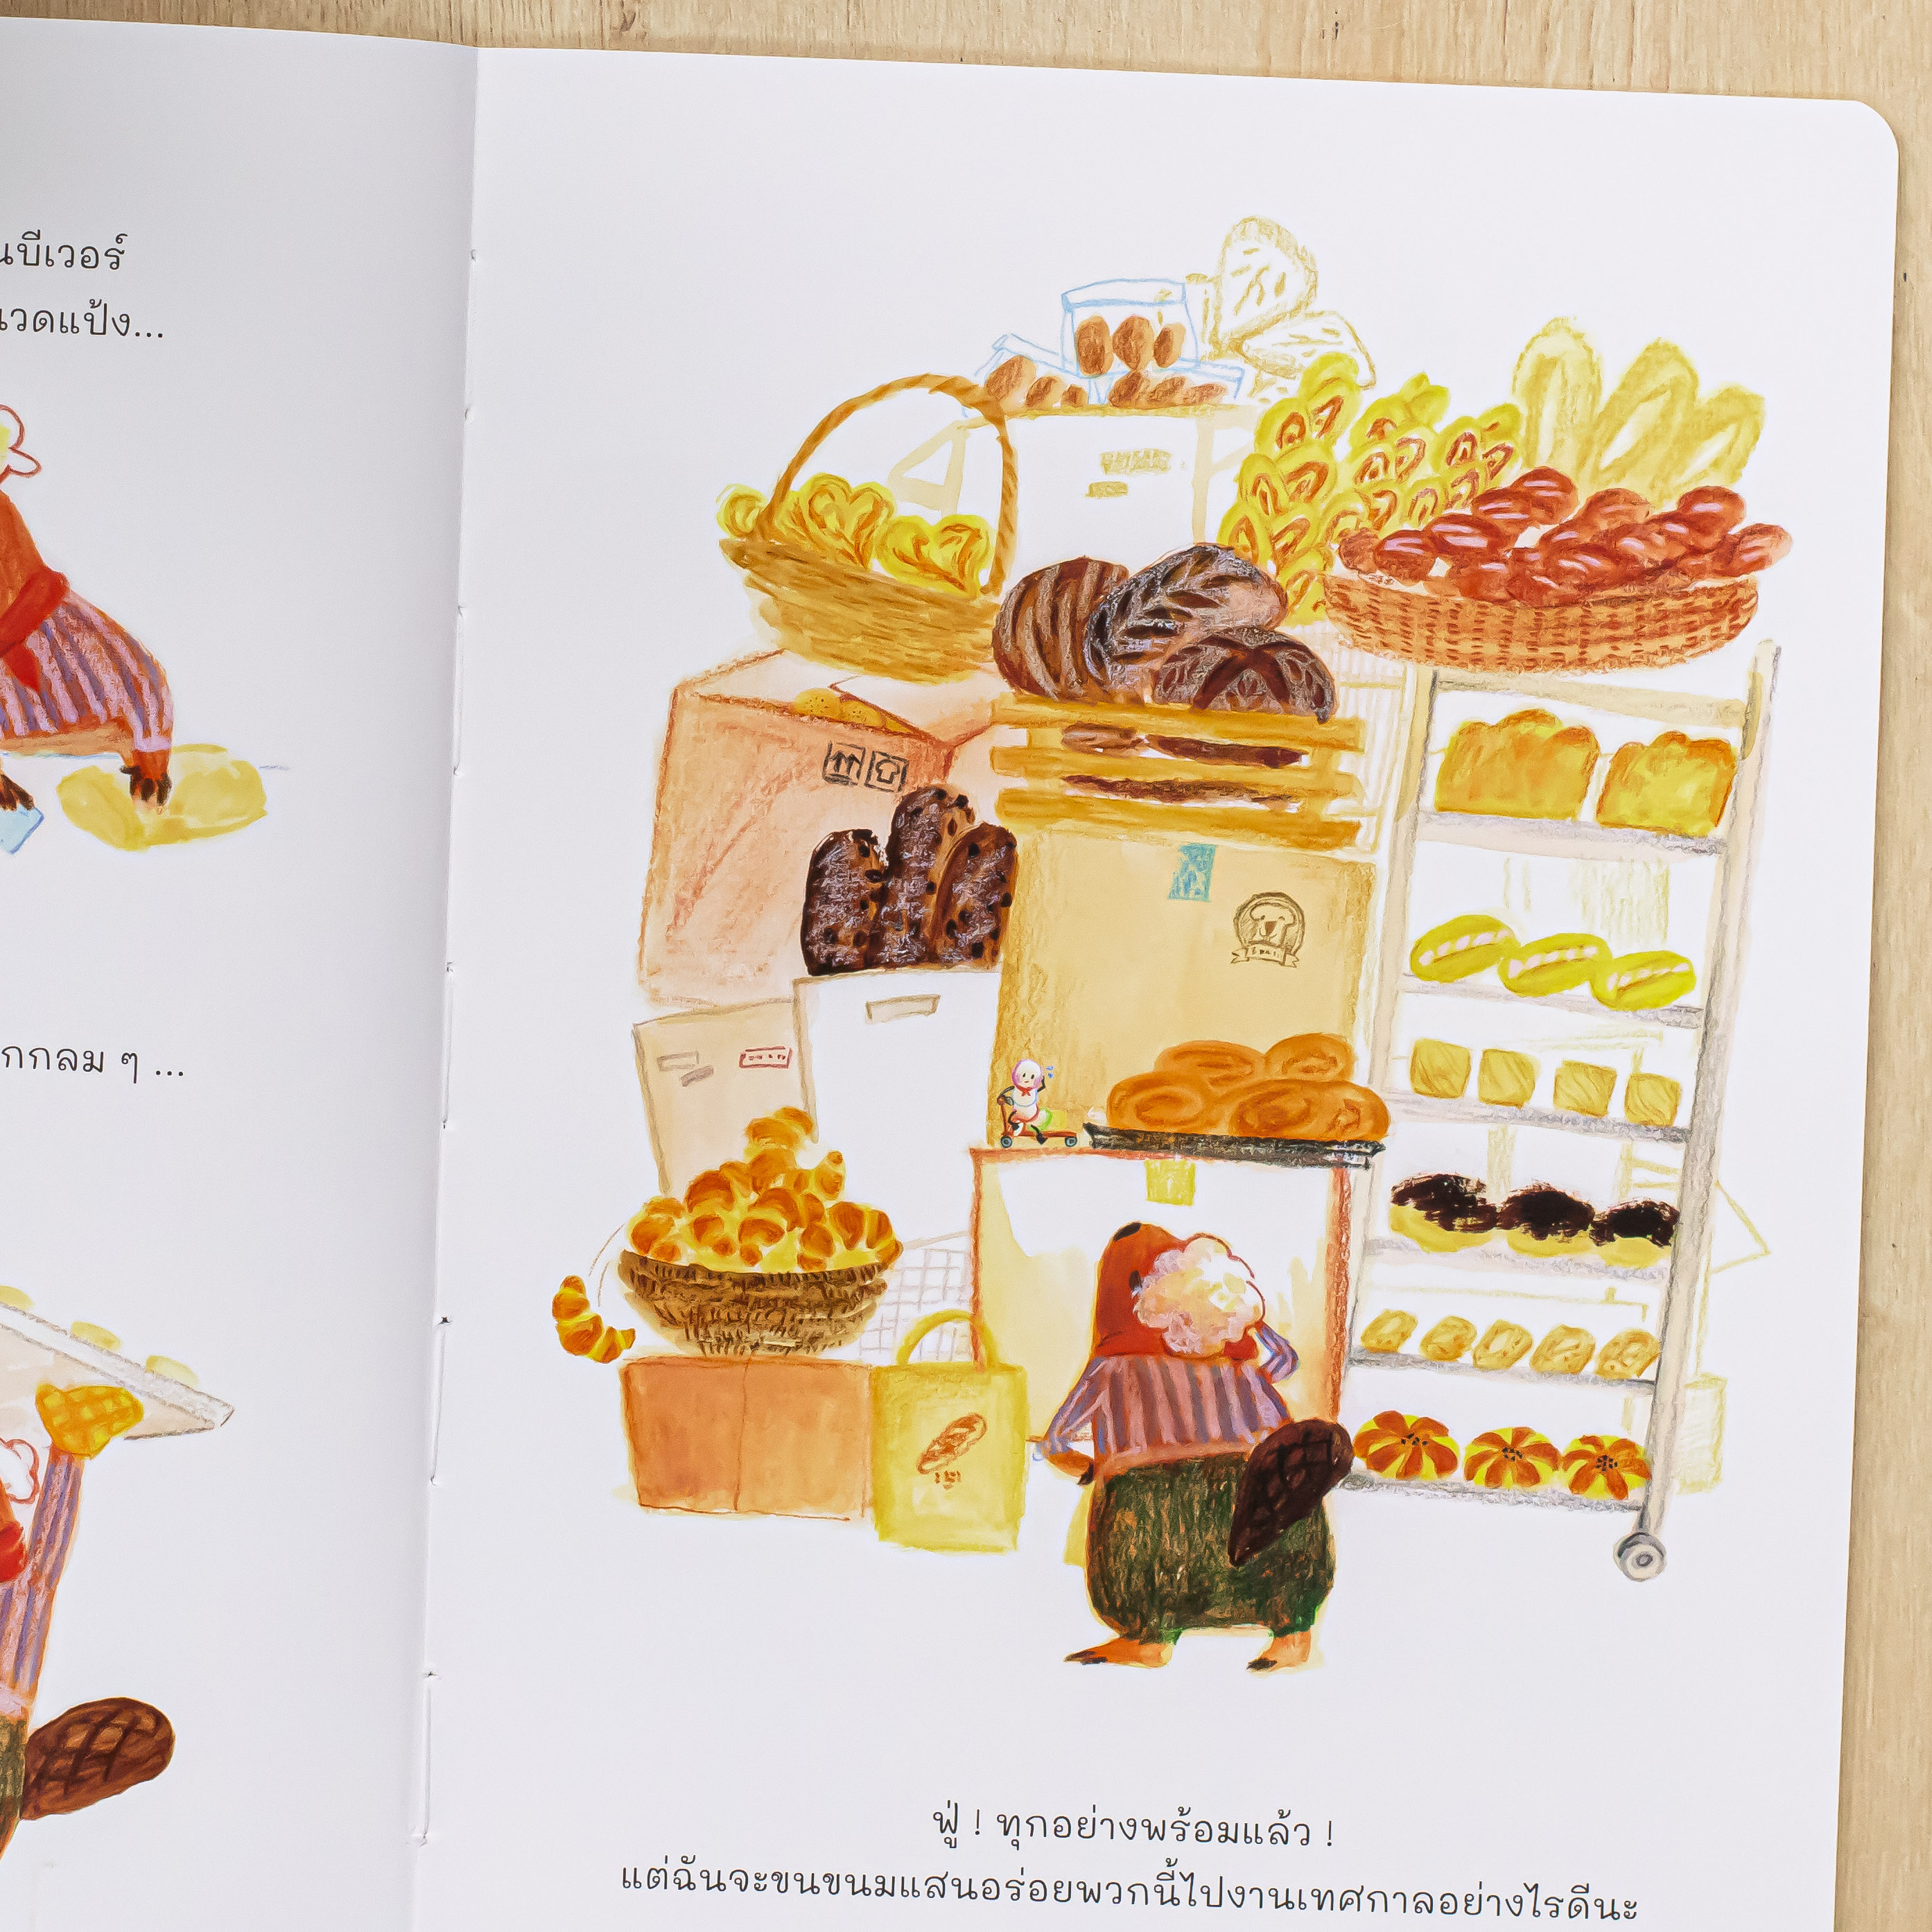 บีเวอร์
นวดแป้ง...
กลม ๆ ...
ฟู่ ! ทุกอย่างพร้อมแล้ว !
แต่ฉันจะขนขนมแสนอร่อยพวกนี้ไปงานเทศกาลอย่างไรดีนะ